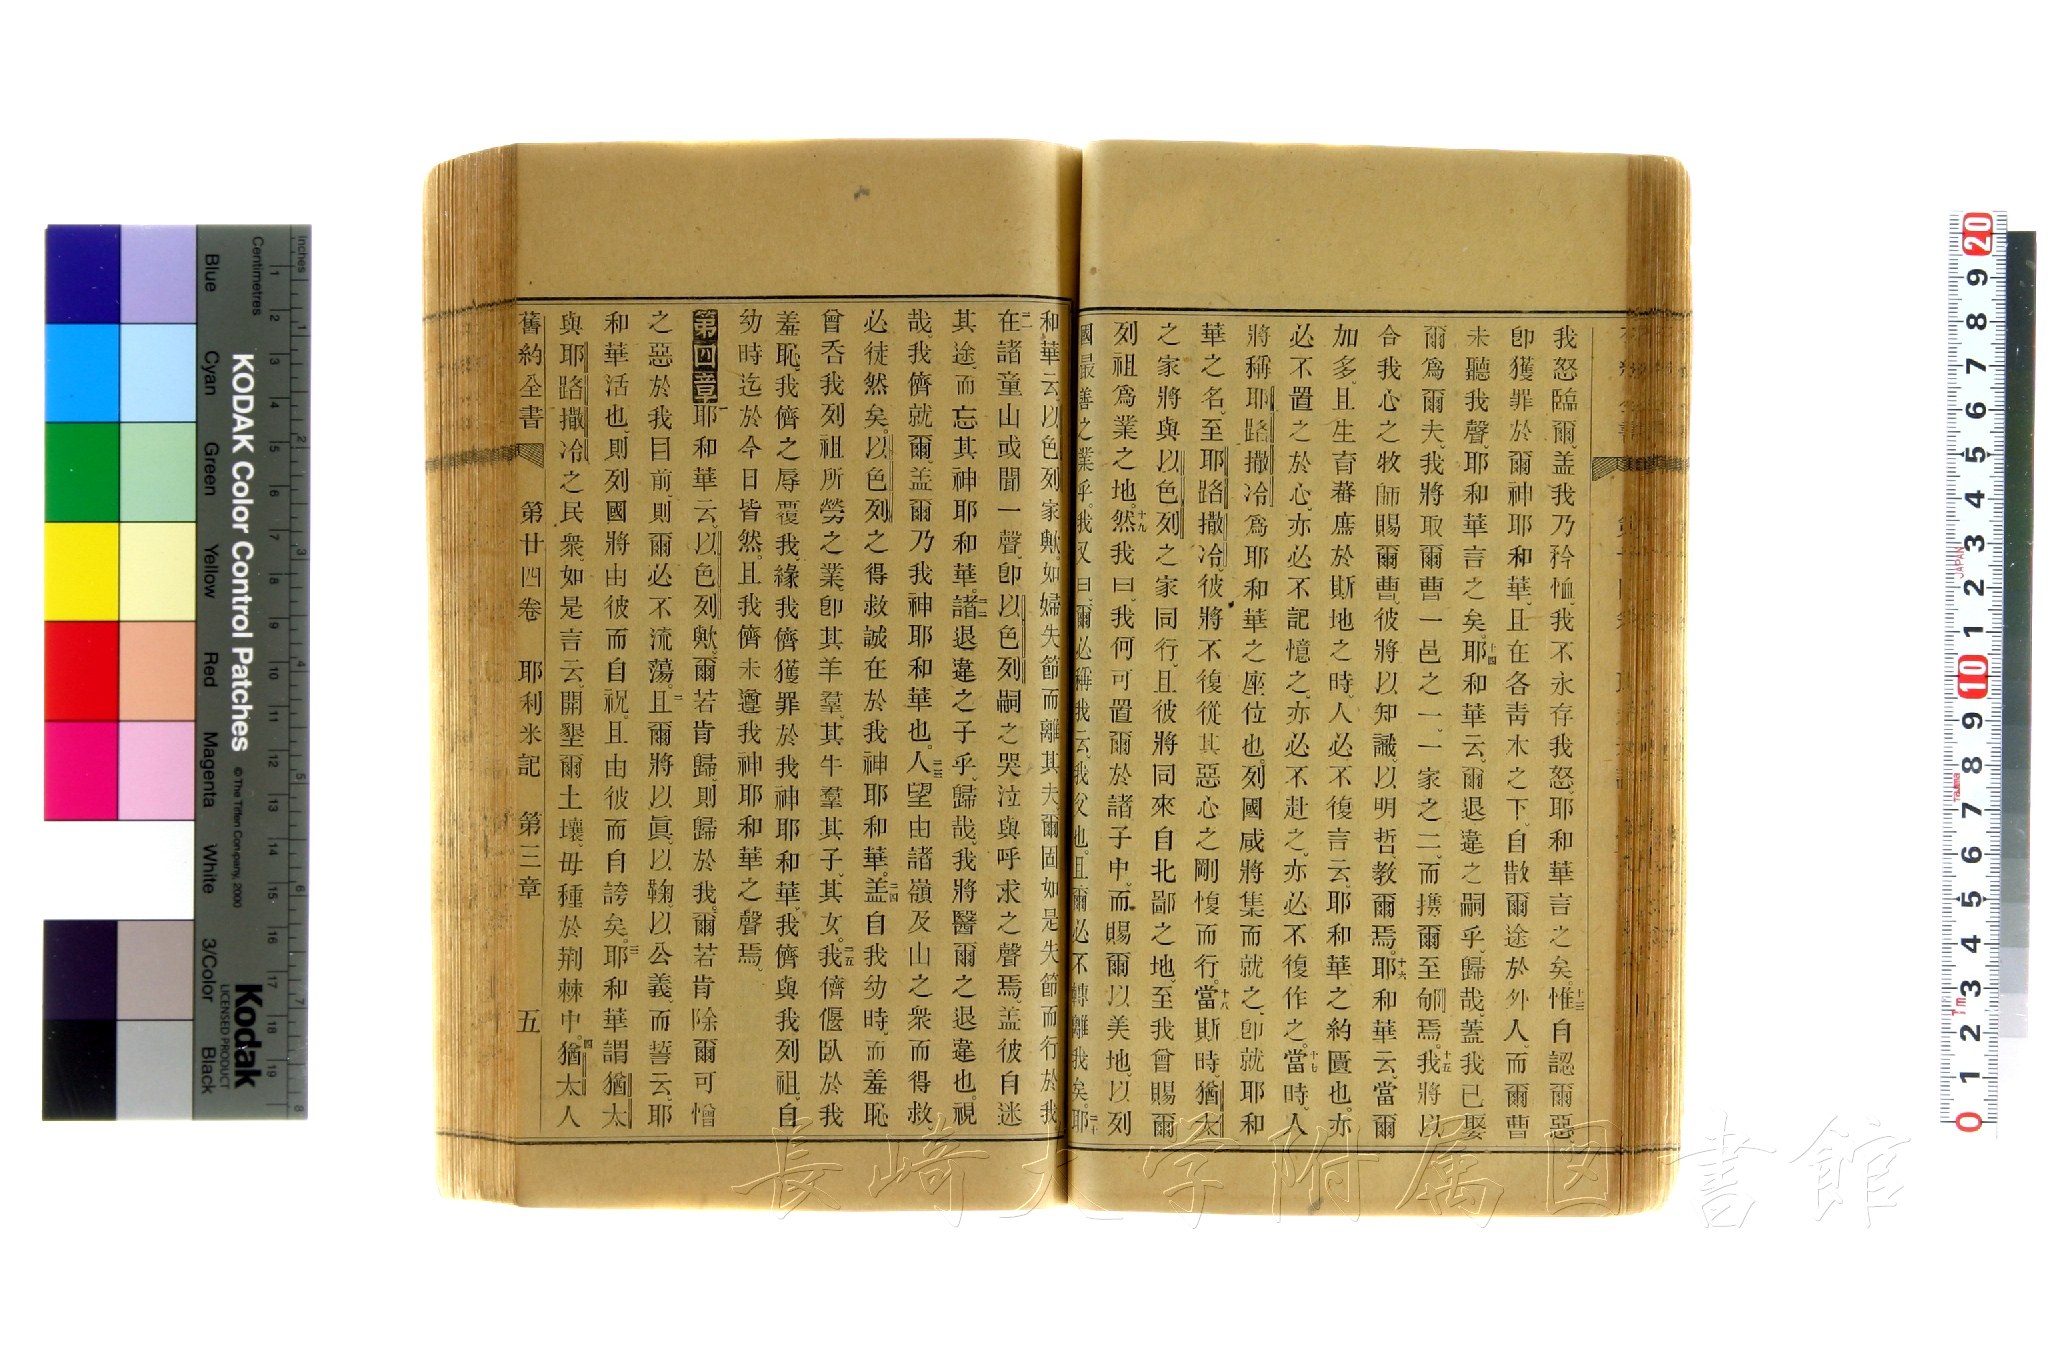 我怒臨爾、盖我乃矜恤、我不永存我怒、耶和華言之矣。十三惟自認爾惡、
卽獲罪於爾神耶和華、且在各靑木之下、自散爾途於外人、而爾曹
未聽我聲、耶和華言之矣。十四耶和華云、爾退違之嗣乎、歸哉、蓋我已娶
爾爲爾夫、我將取爾曹一邑之一、一家之二、而携爾至郇焉。十五我將以
合我心之牧師賜爾曹、彼將以知識、以明哲、教爾焉。十六耶和華云、當爾
加多、且生育蕃庶於斯地之時、人必不復言云、耶和華之約匱也、亦
必不置之於心、亦必不記憶之、亦必不赴之、亦必不復作之。十七當時、人
將稱耶路撒冷爲耶和華之座位也、列國咸將集而就之、卽就耶和
華之名、至耶路撒冷、彼將不復從其惡心之剛愎而行。十八當斯時、猶太
之家將與以色列之家同行、且彼將同來自北鄙之地、至我曾賜爾
列祖爲業之地。十九然我曰、我何可置爾於諸子中、而賜爾以美地、以列
國最善之業乎。我又曰、爾必稱我云、我父也。且爾必不轉離我矣。二十耶
和華云、以色列家歟、如婦失節而離其夫、爾固如是失節而行於我
二一在諸童山或聞一聲、卽以色列嗣之哭泣與呼求之聲焉、盖彼自迷
其途、而忘其神耶和華。二二諸退違之子乎、歸哉、我將醫爾之退違也。視
哉、我儕就爾、盖爾乃我神耶和華也。二三人望由諸嶺及山之衆而得救
必徒然矣。以色列之得救誠在於我神耶和華。二四盖自我幼時、而羞恥
曾吞我列祖所勞之業、卽其羊羣、其牛羣其子、其女。二五我儕偃臥於我
羞恥、我儕之辱覆我、緣我儕獲罪於我神耶和華、我儕與我列祖、自
幼時迄於今日皆然。且我儕未遵我神耶和華之聲焉。
第四章 一耶和華云、以色列歟、爾若肯歸、則歸於我。爾若肯除爾可憎
之惡於我目前、則爾必不流蕩。二且爾將以眞、以鞠、以公義、而誓云、耶
和華活也、則列國將由彼而自祝。且由彼而自誇矣。三耶和華謂猶太
與耶路撒冷之民衆、如是言云、開墾爾土壤、毋種於荆棘中。四猶太人
舊約全書 第廿四卷 耶利米記 第三章 五
KODAK Color Control Patches
© The Tiffen Company, 2000
Kodak
LICENSED PRODUCT
Inches
Centimetres
Blue
Cyan
Green
Yellow
Red
Magenta
White
3/Color
Black
長崎大学附属図書館